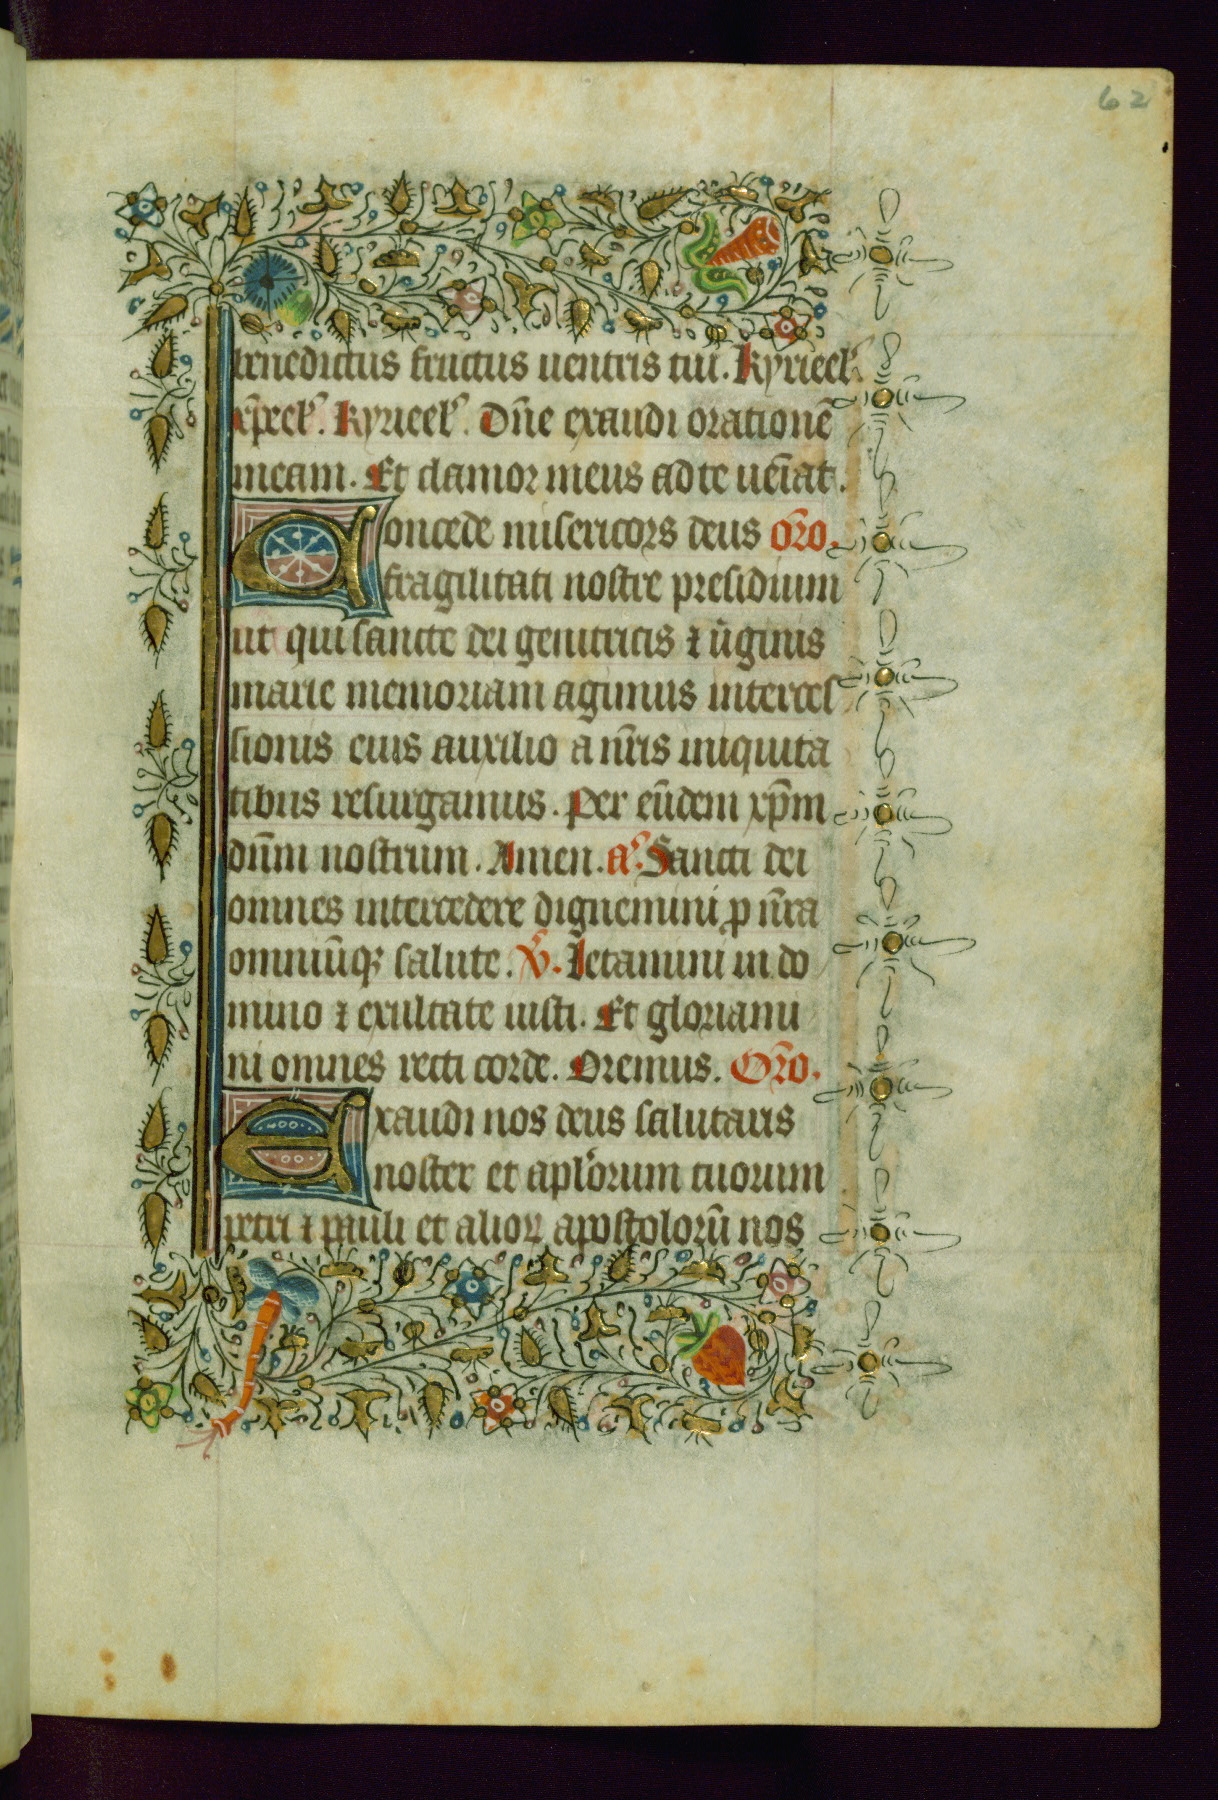 62
benedictus fructus uentris tui. Kyrieel̃.
xp̃eel̃. Kyrieel̃. Dñe exaudi orationẽ
meam. Et clamor meus ad te ueĩat.
Concede misericors deus Oro.
fragilitati nostre presidium
ut qui sancte dei genitricis ⁊ uĩginis
marie memoriam agimus interces
sionis eius auxilio a nr̃is iniquita
tibus resurgamus. Per eũdem xp̃m
dñm nostrum. Amen. a͛. Sancti dei
omnes intercedere dignemini ꝓ nr̃a
omniũqꝫ salute. V͛. Letamini in do
mino ⁊ exultate iusti. Et gloriami
ni omnes recti corde. Oremus. Oro.
Exaudi nos deus salutaris
noster et apl̃orum tuorum
petri ⁊ pauli et alioꝝ apostolorũ nos